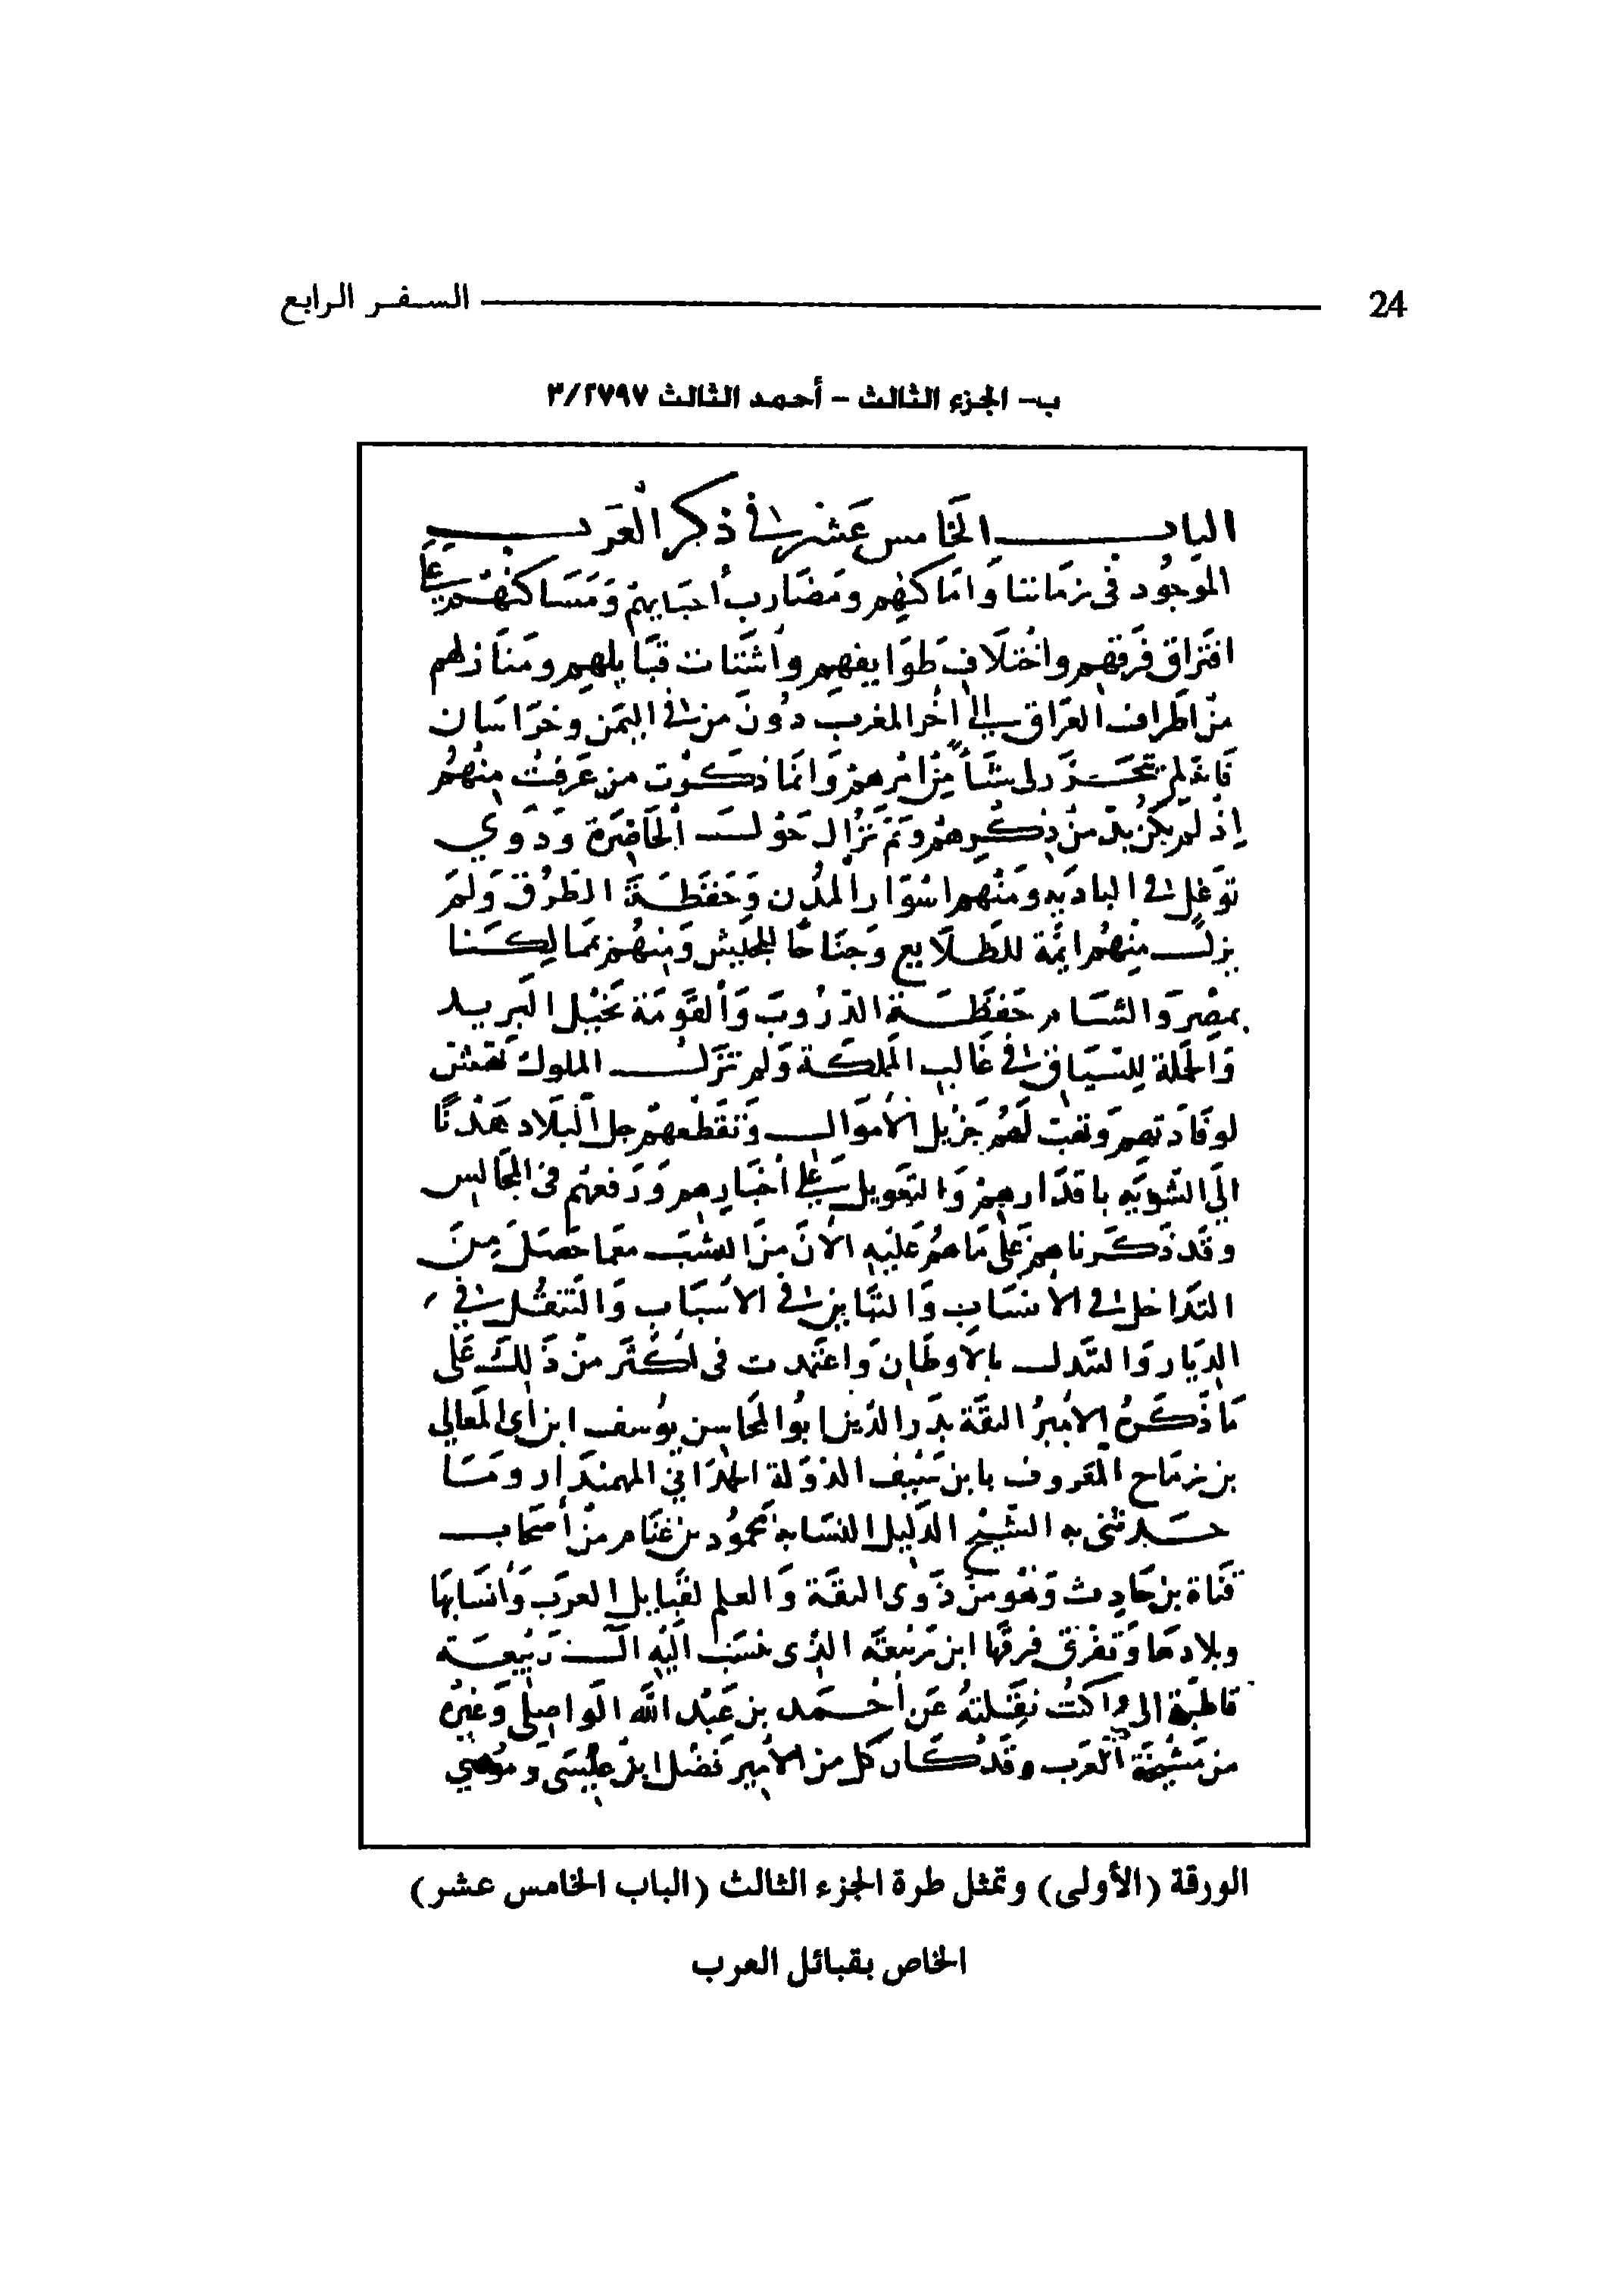 24 السفر الرابع
ب- الجزء الثالث - أحمد الثالث ٣/٢٧٩٧
الباب الخامس عشر في ذكر العرب
الموجود في زماننا وأماكنهم ومضارب أحيايهم ومساكنهم على
افتراق فرقهم واختلاف طوايفهم واشتات قبايلهم ومنازلهم
من اطراف العراق الى اخر المغرب دون من في اليمن وخراسان
فانه لم يتحرر لي شيأ من امرهم وانما ذكرت من عرفت منهم
إذ لم يكن بد من ذكرهم ثم نزال حول الحاضرة وذوي
توغل في الباديه ومنهم اسوار المدن وحفظة الطرق ولم
يزل منهم ايمة للطلايع وجناحا للجيش ومنهم بممالكنا
بمصر والشام حفظة الدروب والقومة بخيل البريد
والحملة للسياق في غالب المملكة ولم تزل الملوك تهش
لوفادتهم وتهب لهم جزيل الأموال وتقطعهم جل البلاد هذنا
الى التنويه باقدارهم والتعويل على أخبارهم ورفعهم في المجالس
وقد ذكرناهم على ما هم عليه الآن من النسب معما حصل من
التداخل في الانساب والتباين في الاسباب والتنقل في
الديار والتبدل بالاوطان واعتمدت في أكثر من ذلك على
ما ذكره الأمير الثقة بدر الدين ابو المحاسن يوسف ابن ابي المعالي
بن زماح المعروف بابن سيف الدولة الحمداني المهمندار وما
حدثني به الشيخ الدليل النسابة محمود بن غنام من أصحاب
قناة بن حارث وهو من ذوي الثقة والعلم لقبايل العرب وأنسابها
وبلادها وتفرق فرقها ابن ربيعة الذي نسب اليه آل ربيعة
قاطبة الى ما كنت نقلته عن أحمد بن عبد الله الواصلي وغيره
من مشيخة العرب وقد كان كل من الأمير فضل ابن عيسى وموسى
الورقة (الأولى) وتمثل طرة الجزء الثالث (الباب الخامس عشر)
الخاص بقبائل العرب